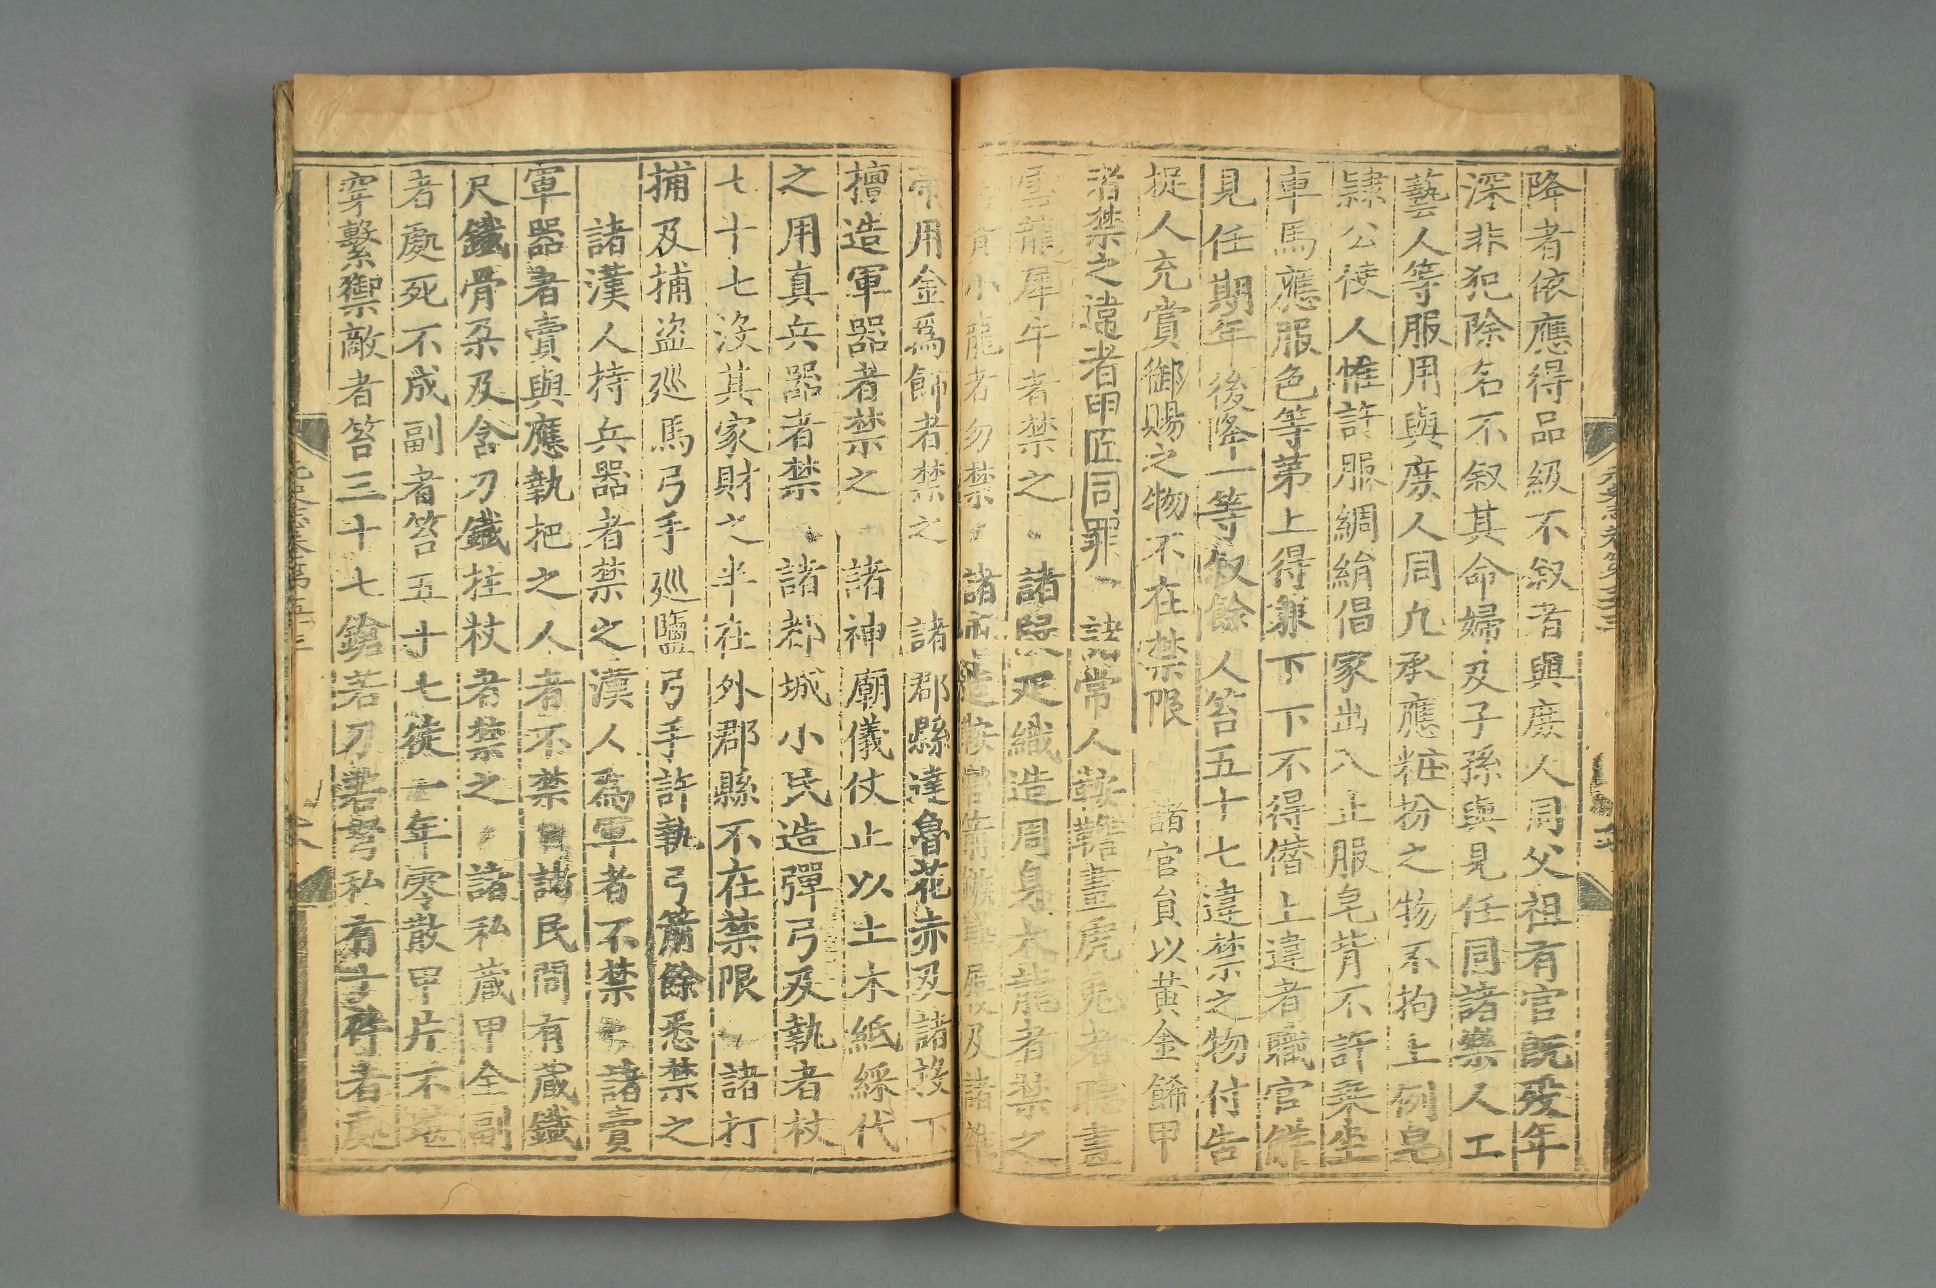 降者依應得品級不叙者與庶人同父祖有官旣歿年
深非犯除名不叙其命婦及子孫與見任同諸樂人工
藝人等服用與庶人同凡承應粧扮之物不拘上例皂
隸公使人惟許服綢絹倡家出入止服皂背不許乘坐
車馬應服色等第上得兼下下不得僭上違者職官觧
見任期年後降一等叙餘人笞五十七違禁之物付告
捉人充賞御賜之物不在禁限　諸官員以黃金餙甲
者禁之違者甲匠同罪　諸常人鞍韂畫虎兎者聽畫
雲龍犀牛者禁之　諸叚疋織造周身大龍者禁之
背小龍者勿禁　諸
常用金爲飾者禁之　諸郡縣達魯花赤及諸投下
擅造軍器者禁之　諸神廟儀仗止以土木紙綵代
之用真兵器者禁　諸都城小民造彈弓及執者杖
七十七沒其家財之半在外郡縣不在禁限　諸打
捕及捕盗廵馬弓手廵鹽弓手許執弓箭餘悉禁之
諸漢人持兵器者禁之漢人爲軍者不禁　諸賣
軍器者賣與應執把之人者不禁　諸民間有藏鐵
尺鐵骨朶及含刀鐵拄杖者禁之　諸私藏甲全副
者處死不成副者笞五十七徒一年零散甲片不堪
穿繫禦敵者笞三十七鎗若刀若弩私有十件者處
元史志卷第五十三